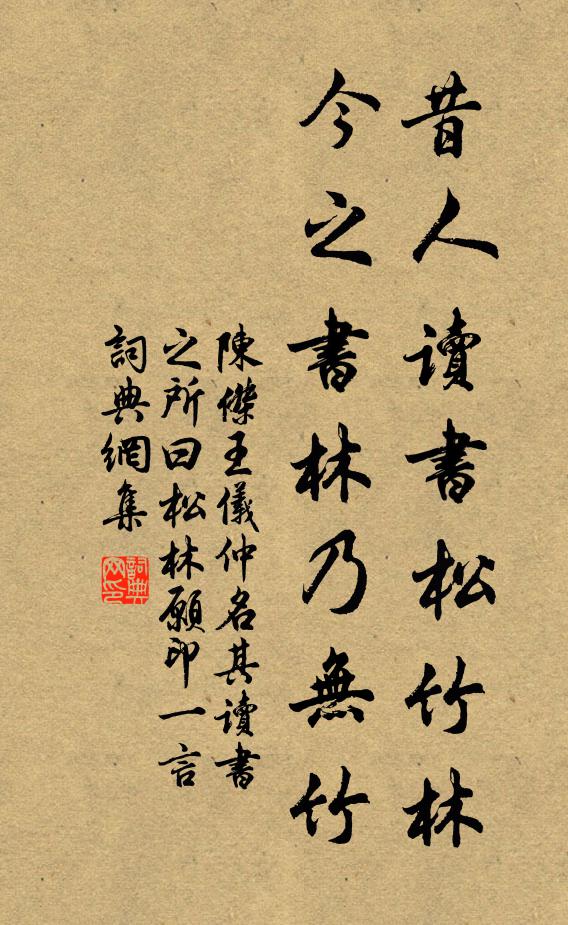 昔人讀書松竹林
今之書林乃無竹
陳傑王儀仲名其讀書
之所曰松林願印一言
詞典網集
詞典网印